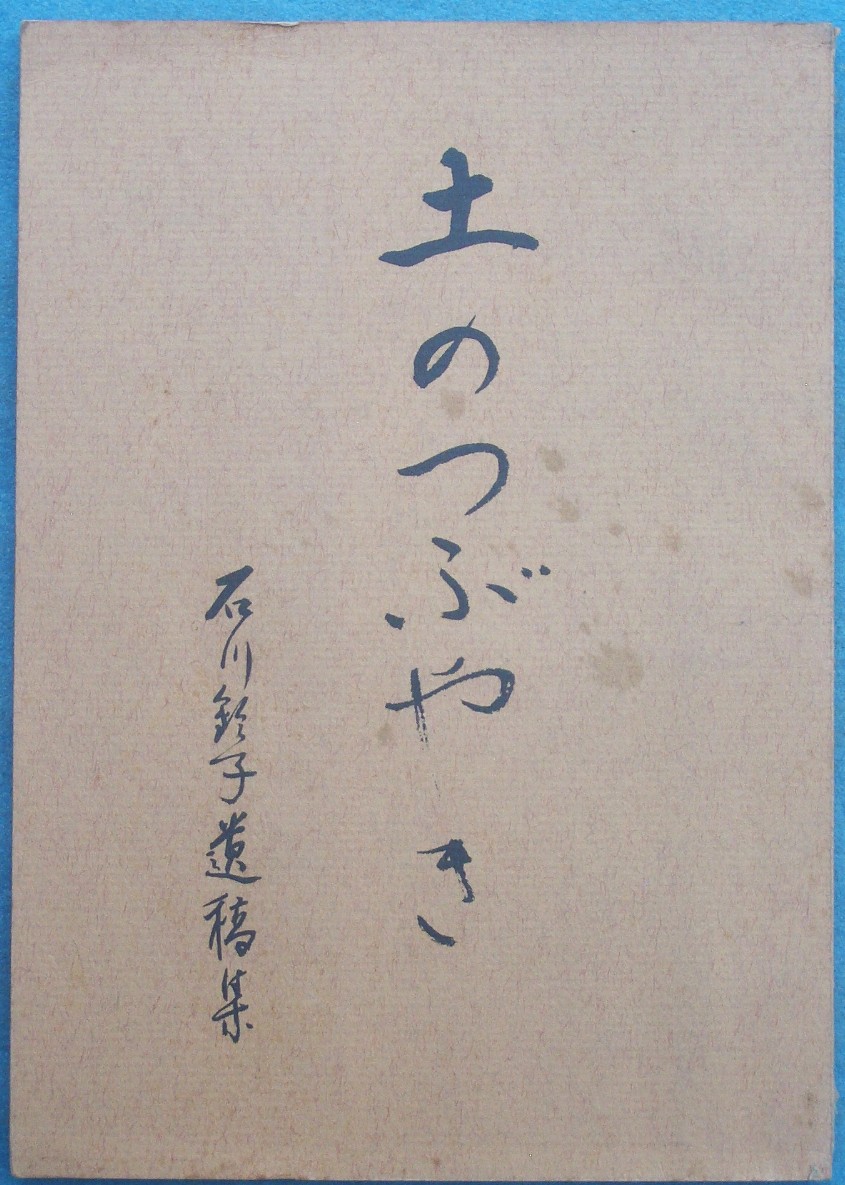 土のつぶやき
石川鈴子遺稿集